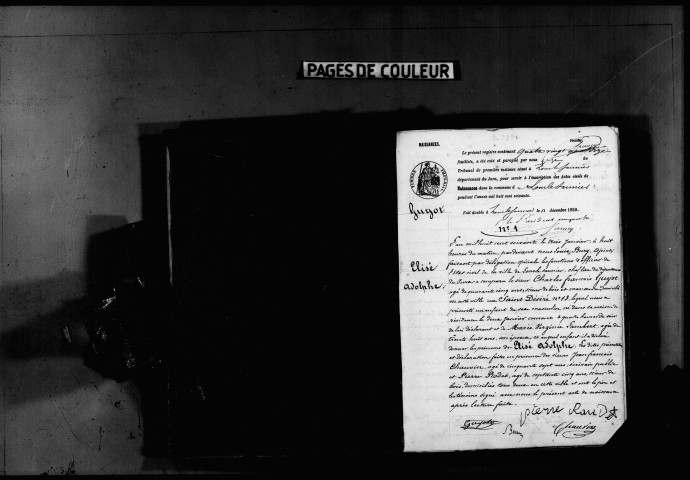 PAGES DE COULEUR
NAISSANCES.
Le présent registre contenant quatre vingt
feuillets, a été coté et paraphé par nous Juge du
Tribunal de première instance séant à Lons le Saunier
département du Jura, pour servir à l'inscription des Actes civils de
Naissances dans la commune d Lons le Saunier
pendant l'année mil huit cent soixante.
Fait double à Lons le Saunier le décembre 1859.
Guyot
N° 1
L'an mil huit cent soixante le trois Janvier à huit
heures du matin, pardevant nous Louis Bury, adjoint
faisant par délégation spéciale les fonctions d'officier de
l'état civil de la ville de Lons le Saunier, chef lieu du département
Elisé
Adolphe
du Jura a comparu le sieur Charles françois Guyot
agé de quarante cinq ans, scieur de bois et marchand domicilié
en cette ville rue Saint Désiré N° 13, lequel nous a
présenté un enfant du sexe masculin né dans sa maison de
résidence le deux Janvier courant à quatre heures du soir
de lui déclarant et de Marie Virginie Lambert, agée de
trente huit ans, son épouse et auquel enfant il a déclaré
donner les prénoms de Elisé Adolphe. Les dites présentation
et déclaration faites en présence des sieurs Jean françois
Chauvin, agé de cinquante sept ans, écrivain public
et Pierre agé de cinq ans, scieur de
bois, domiciliés tous deux en cette ville et ont le père et
les témoins signé avec nous le présent acte de naissance
après lecture faite.
pierre
Guyot
Bury
Chauvin